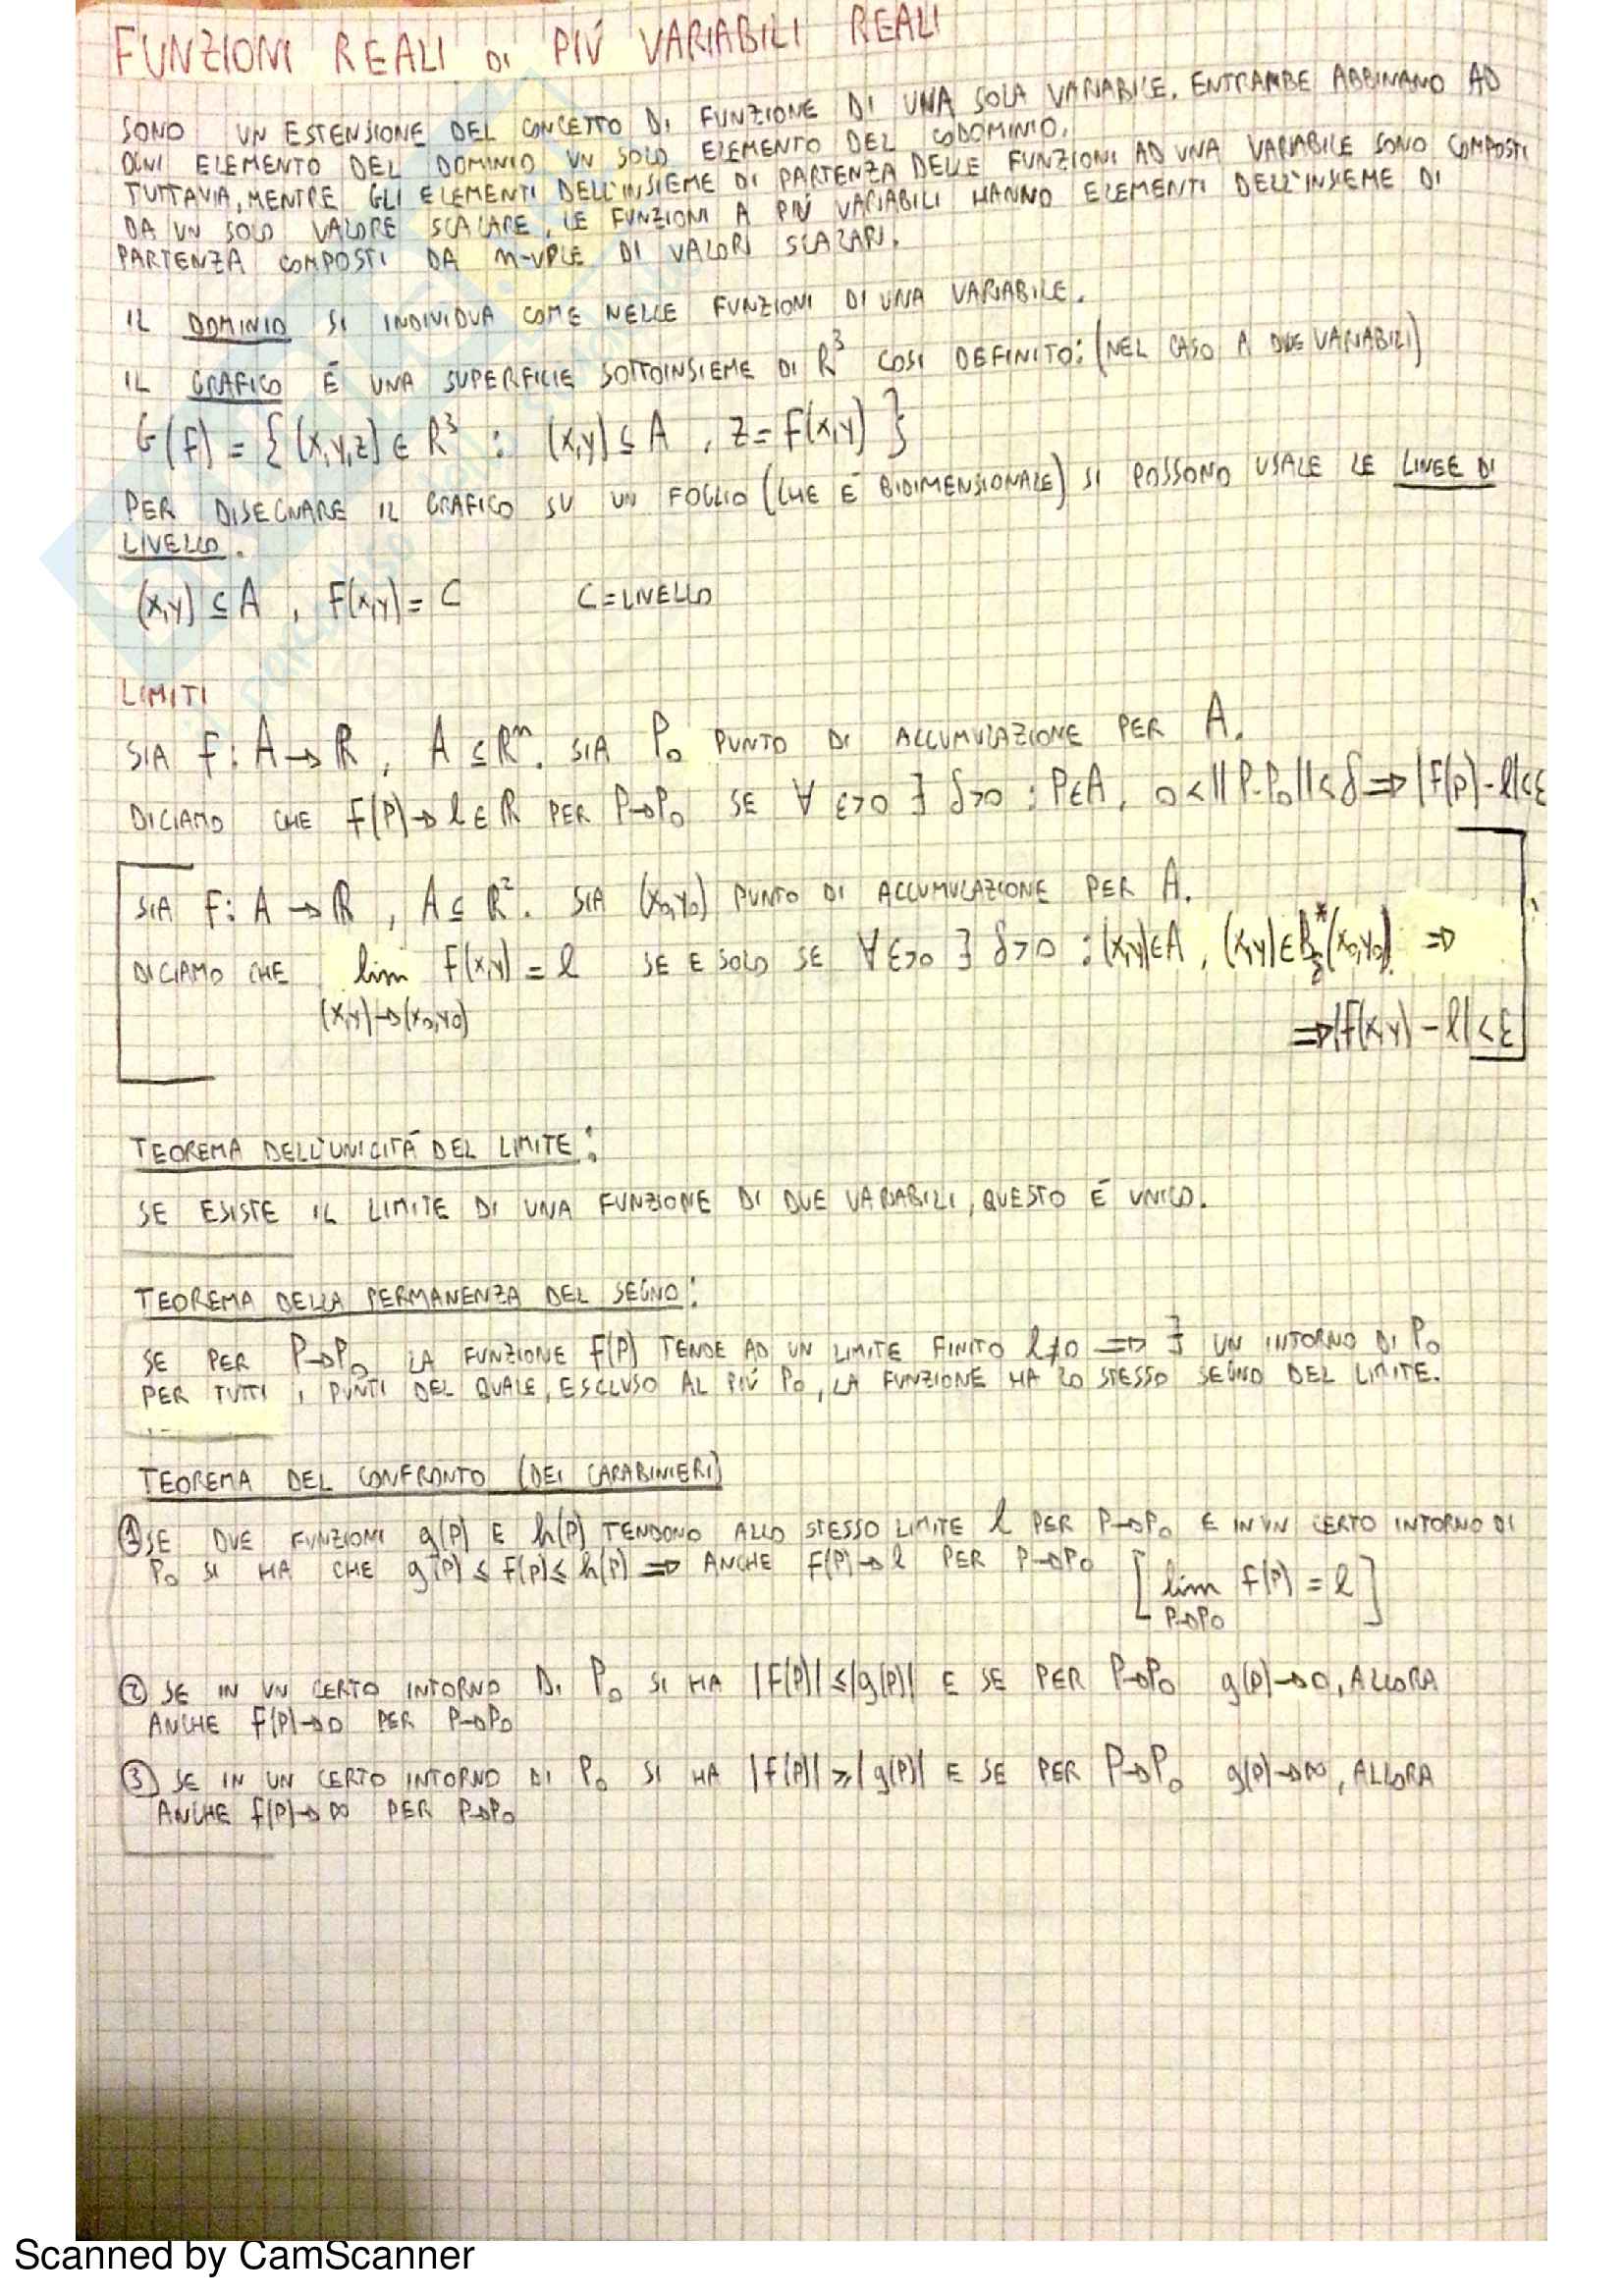 FUNZIONI REALI DI PIÚ VARIABILI REALI
SONO UN ESTENSIONE DEL CONCETTO DI FUNZIONE DI UNA SOLA VARIABILE. ENTRAMBE ABBINANO AD
OGNI ELEMENTO DEL DOMINIO UN SOLO ELEMENTO DEL CODOMINIO.
TUTTAVIA, MENTRE GLI ELEMENTI DELL'INSIEME DI PARTENZA DELLE FUNZIONI AD UNA VARIABILE SONO COMPOSTI
DA UN SOLO VALORE SCALARE, LE FUNZIONI A PIÚ VARIABILI HANNO ELEMENTI DELL'INSIEME DI
PARTENZA COMPOSTI DA M-UPLE DI VALORI SCALARI.
IL DOMINIO SI INDIVIDUA COME NELLE FUNZIONI DI UNA VARIABILE.
IL GRAFICO É UNA SUPERFICIE SOTTOINSIEME DI R³ COSI DEFINITO: (NEL CASO A DUE VARIABILI)
G(f) = {(x,y,z) ∈ R³ : (x,y) ⊆ A , z = F(x,y)}
PER DISEGNARE IL GRAFICO SU UN FOGLIO (CHE É BIDIMENSIONALE) SI POSSONO USALE LE LINEE DI
LIVELLO.
(x,y) ⊆ A , F(x,y) = C C = LIVELLO
LIMITI
SIA f: A → R , A ⊆ Rⁿ. SIA P₀ PUNTO DI ACCUMULAZIONE PER A.
DICIAMO CHE f(P) → l ∈ R PER P→P₀ SE ∀ ε>0 ∃ δ>0 : P∈A, 0<||P-P₀||<δ ⇒ |F(p)-l|<ε
SIA F: A → R , A ⊆ R². SIA (x₀,y₀) PUNTO DI ACCUMULAZIONE PER A.
DICIAMO CHE lim F(x,y) = l SE E SOLO SE ∀ε>0 ∃ δ>0 : (x,y)∈A , (x,y)∈B*δ(x₀,y₀) ⇒
(x,y)→(x₀,y₀)
⇒|f(x,y) - l| < ε
TEOREMA DELL'UNICITÁ DEL LIMITE:
SE ESISTE IL LIMITE DI UNA FUNZIONE DI DUE VARIABILI, QUESTO É UNICO.
TEOREMA DELLA PERMANENZA DEL SEGNO:
SE PER P→P₀ LA FUNZIONE F(P) TENDE AD UN LIMITE FINITO l≠0 ⇒ ∃ UN INTORNO DI P₀
PER TUTTI I PUNTI DEL QUALE, ESCLUSO AL PIÚ P₀, LA FUNZIONE HA LO STESSO SEGNO DEL LIMITE.
TEOREMA DEL CONFRONTO (DEI CARABINIERI)
① SE DUE FUNZIONI g(P) E h(P) TENDONO ALLO STESSO LIMITE l PER P→P₀ E IN UN CERTO INTORNO DI
P₀ SI HA CHE g(P) ≤ f(P) ≤ h(P) ⇒ ANCHE F(P)→l PER P→P₀ [lim F(P) = l]
P→P₀
② SE IN UN CERTO INTORNO DI P₀ SI HA |F(P)| ≤ |g(P)| E SE PER P→P₀ g(P)→0, ALLORA
ANCHE F(P)→0 PER P→P₀
③ SE IN UN CERTO INTORNO DI P₀ SI HA |f(P)| ≥ |g(P)| E SE PER P→P₀ g(P)→∞, ALLORA
ANCHE f(P)→∞ PER P→P₀
Scanned by CamScanner